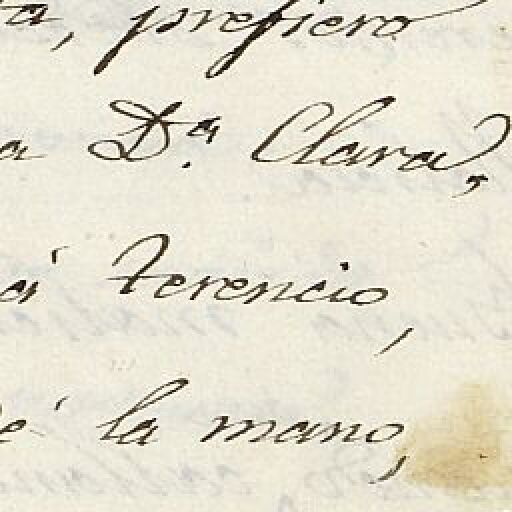 a, prefiero
a D.ª Clara,
á Terencio,
é la mano,